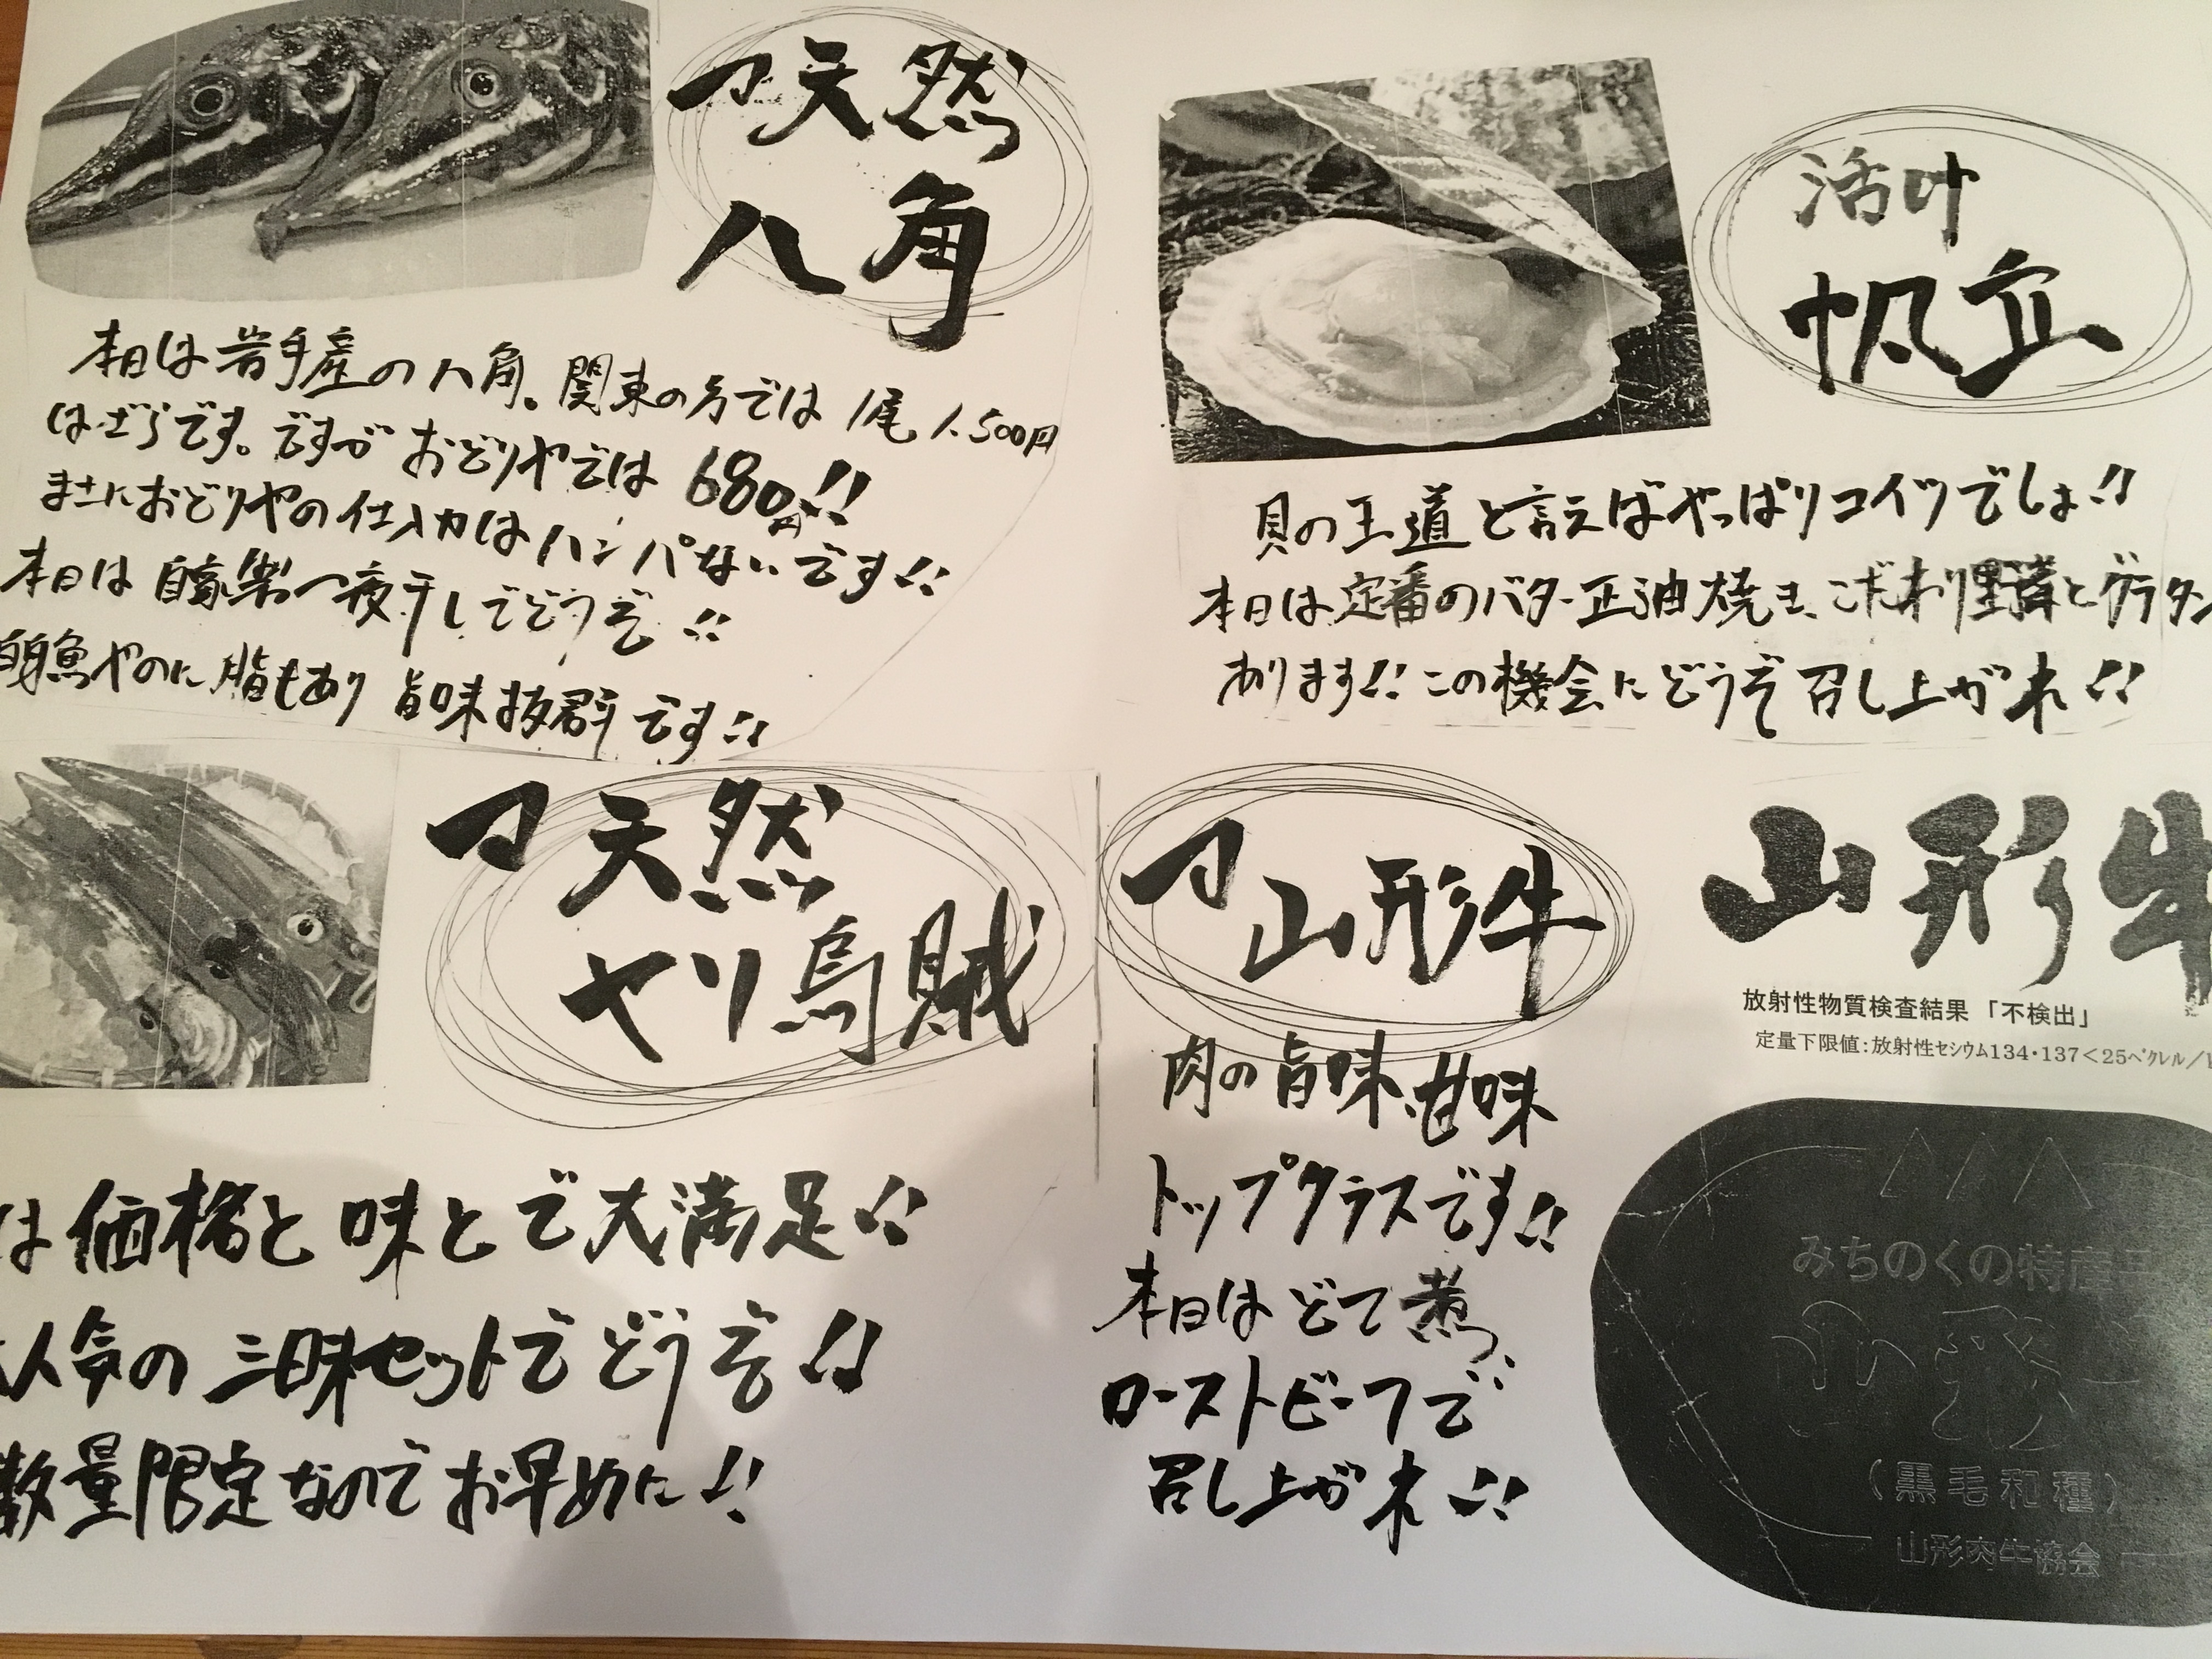 天然
八角
本日は岩手産の八角。関東の方では1尾1,500円
はざらです。ですがおどりやでは680円!!
まさにおどりやの仕入力はハンパないです!!
本日は自家製一夜干しでどうぞ!!
白身魚やのに脂もあり旨味抜群です!!
活〆
帆立
貝の王道と言えばやっぱりコイツでしょ!!
本日は定番のバター正油焼き、こだわり野菜とグラタン
あります!! この機会にどうぞ召し上がれ!!
天然
ヤリ烏賊
は価格と味とで大満足!!
人気の三昧セットでどうぞ!!
数量限定なのでお早めに!!
山形牛
肉の旨味、甘味
トップクラスです!!
本日はどて煮、
ローストビーフで
召し上がれ!!
山形牛
放射性物質検査結果「不検出」
定量下限値:放射性セシウム134・137<25ベクレル/
みちのくの特産品
山形
(黒毛和種)
山形肉牛協会